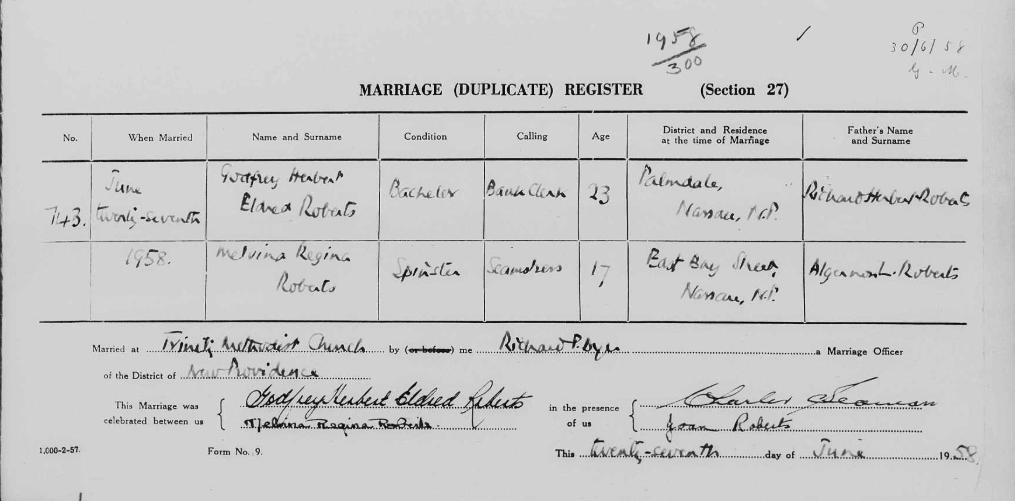 1958
300
P
30/6/58
G. M.
MARRIAGE (DUPLICATE) REGISTER (Section 27)
No. When Married Name and Surname Condition Calling Age District and Residence at the time of Marriage Father's Name and Surname
June Godfrey Herbert Bachelor Bank Clerk 23 Palmdale, Richard Herbert Roberts
743. twenty-seventh Eldred Roberts Nassau, N.P.
1958. Melvina Regina Spinster Seamstress 17 East Bay Street, Algernon L. Roberts
Roberts Nassau, N.P.
Married at Trinity Methodist Church by (or before) me Richard P. Dyer a Marriage Officer
of the District of New Providence
This Marriage was celebrated between us { Godfrey Herbert Eldred Roberts in the presence of us { Charles Seaman
Melvina Regina Roberts. Joan Roberts
1,000-2-57. Form No. 9. This twenty-seventh day of June 1958.